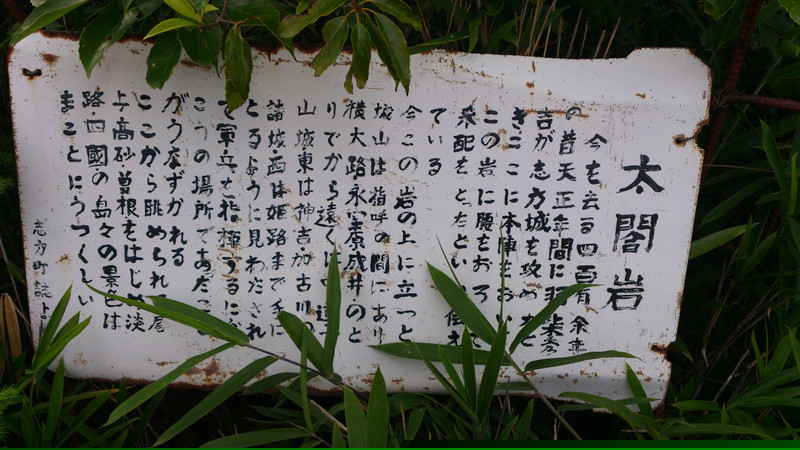 太閤岩
今を去る四百有余年
の昔天正年間に羽柴秀
吉が志方城を攻めたと
きここに本陣をおいて
この岩に腰をおろ
采配をとったとい 伝え
ている
今この岩の上に立つと
城山は指呼の間にあり
横大路永室原成井のと
りでから遠くは
山城東は神吉加古川の
諸城西は姫路まで手に
とるように見わたされ
て軍兵を指揮するに
こうの場所であったこ
がうなずかれる
ここから眺められ 尾
上高砂曽根をはじめ淡
路四國の島々の景色は
まことにうつくしい
志方町誌よ